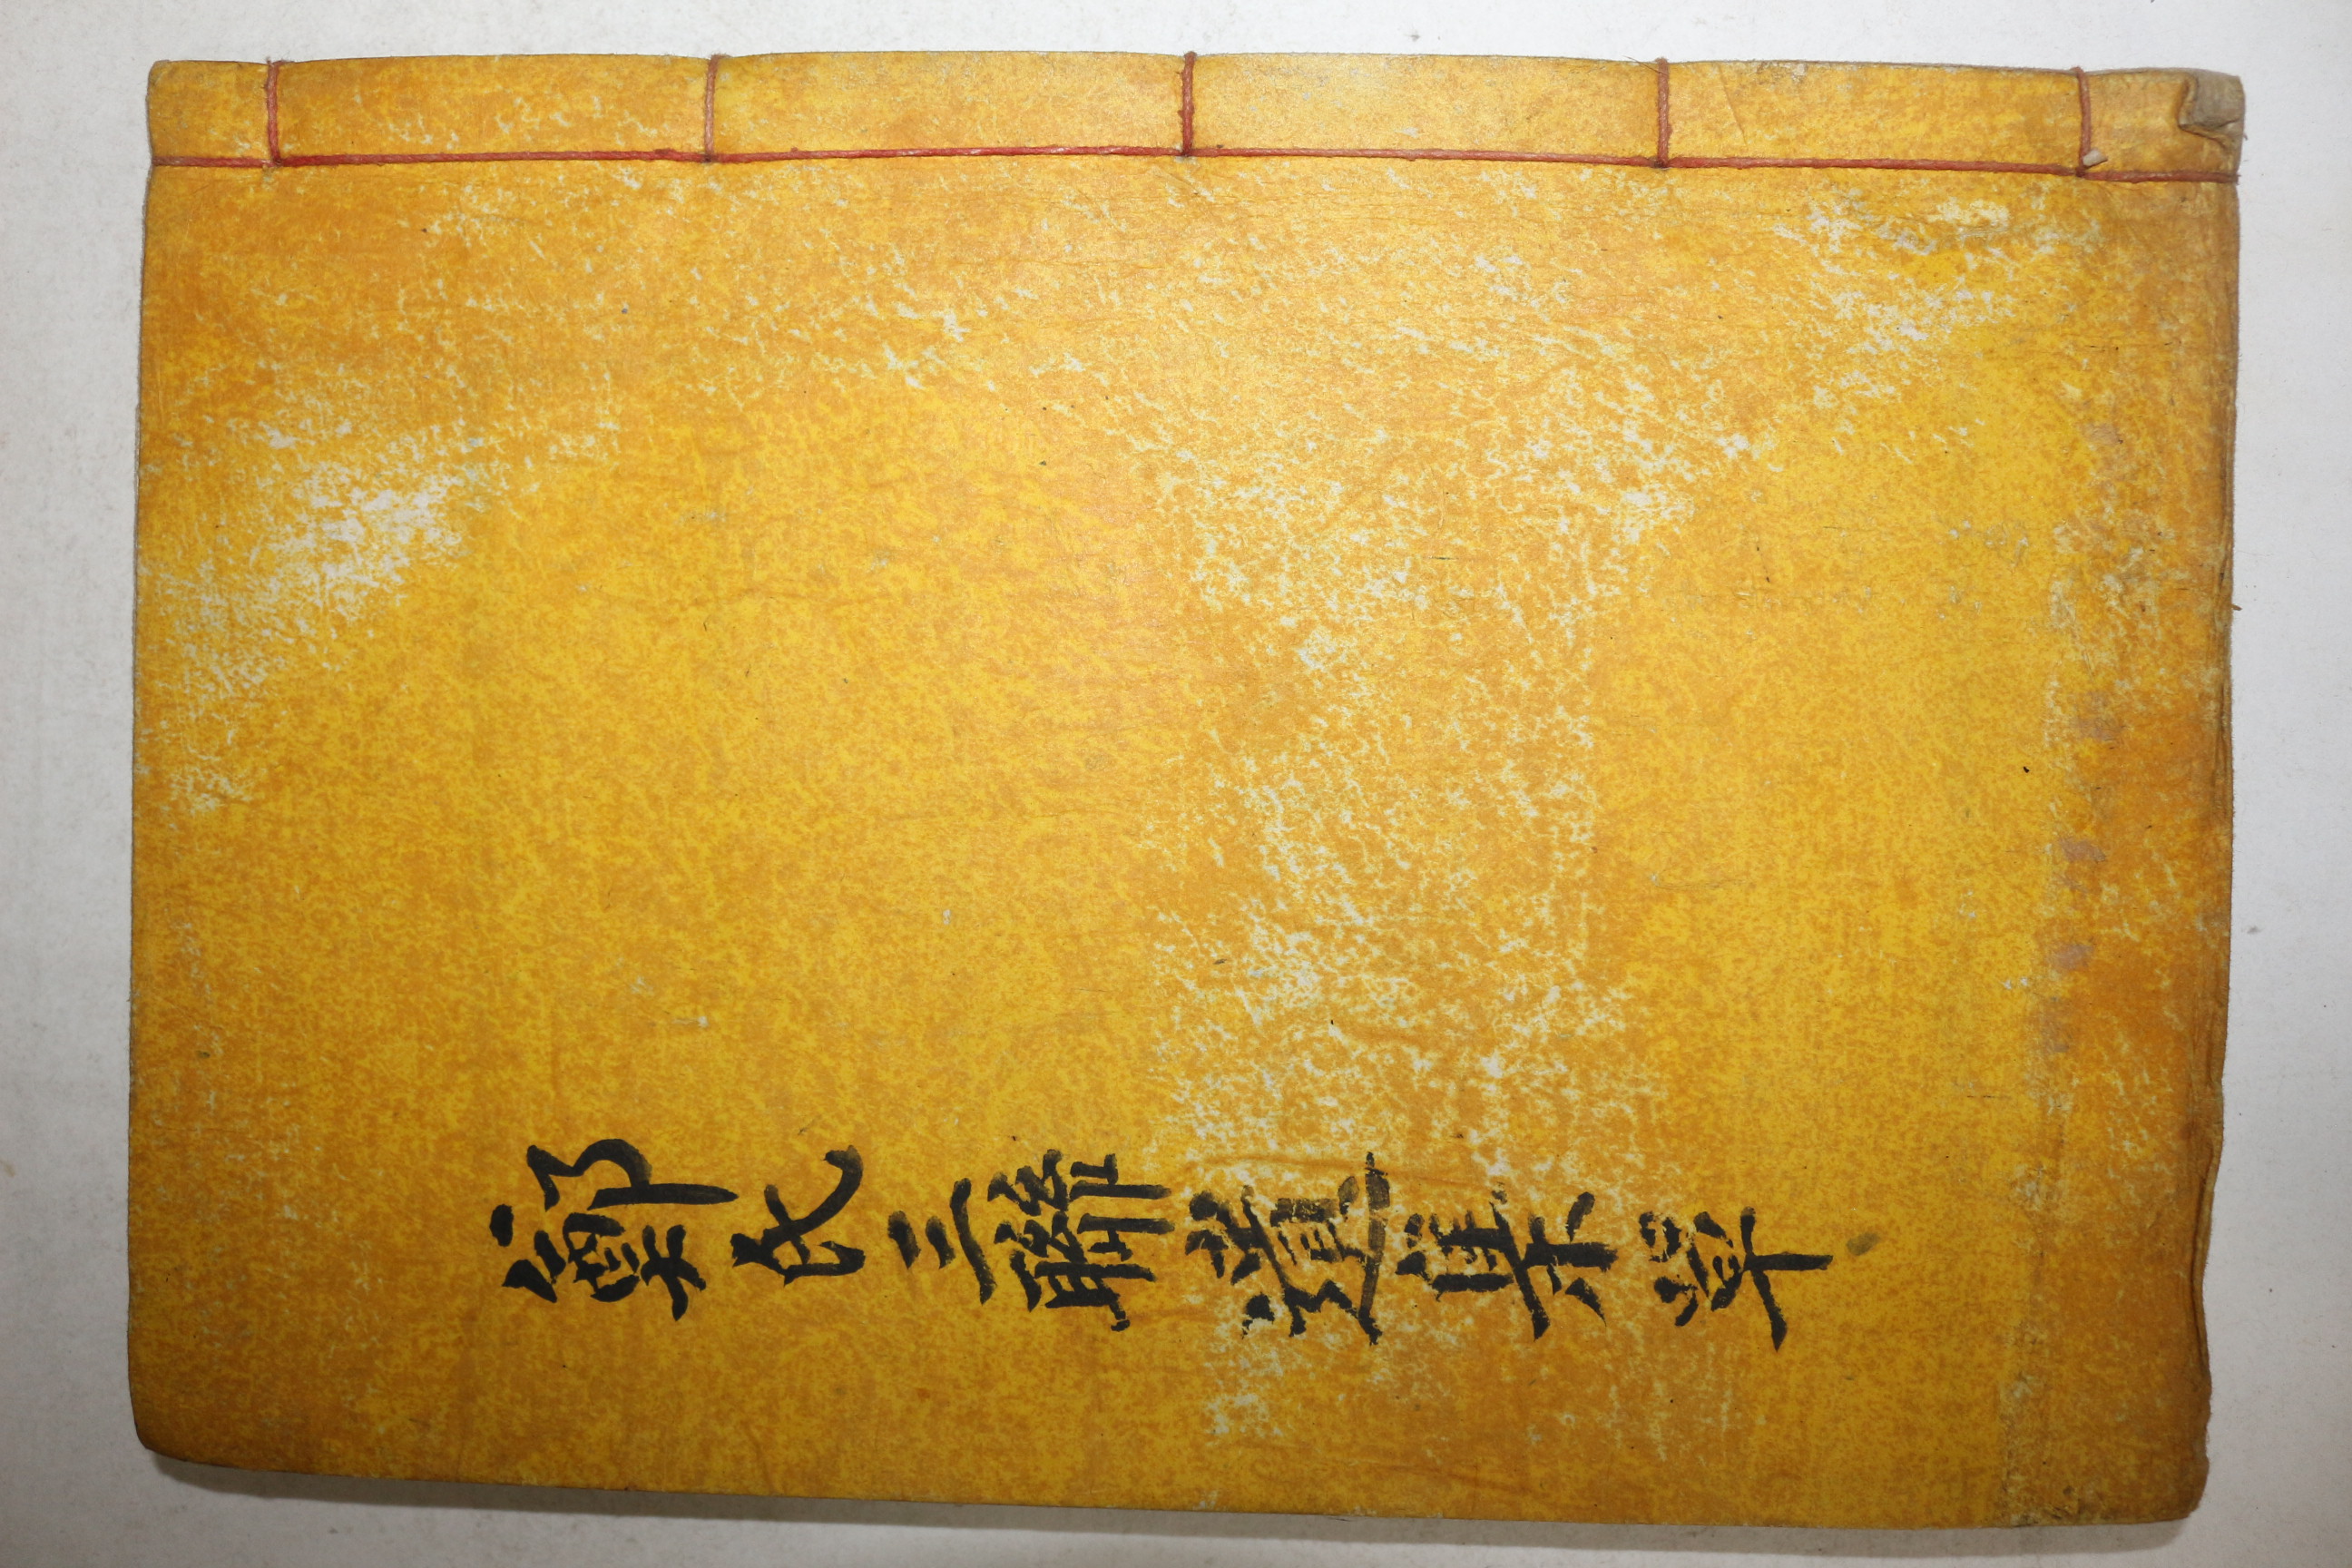 鄭氏三聯遺集單